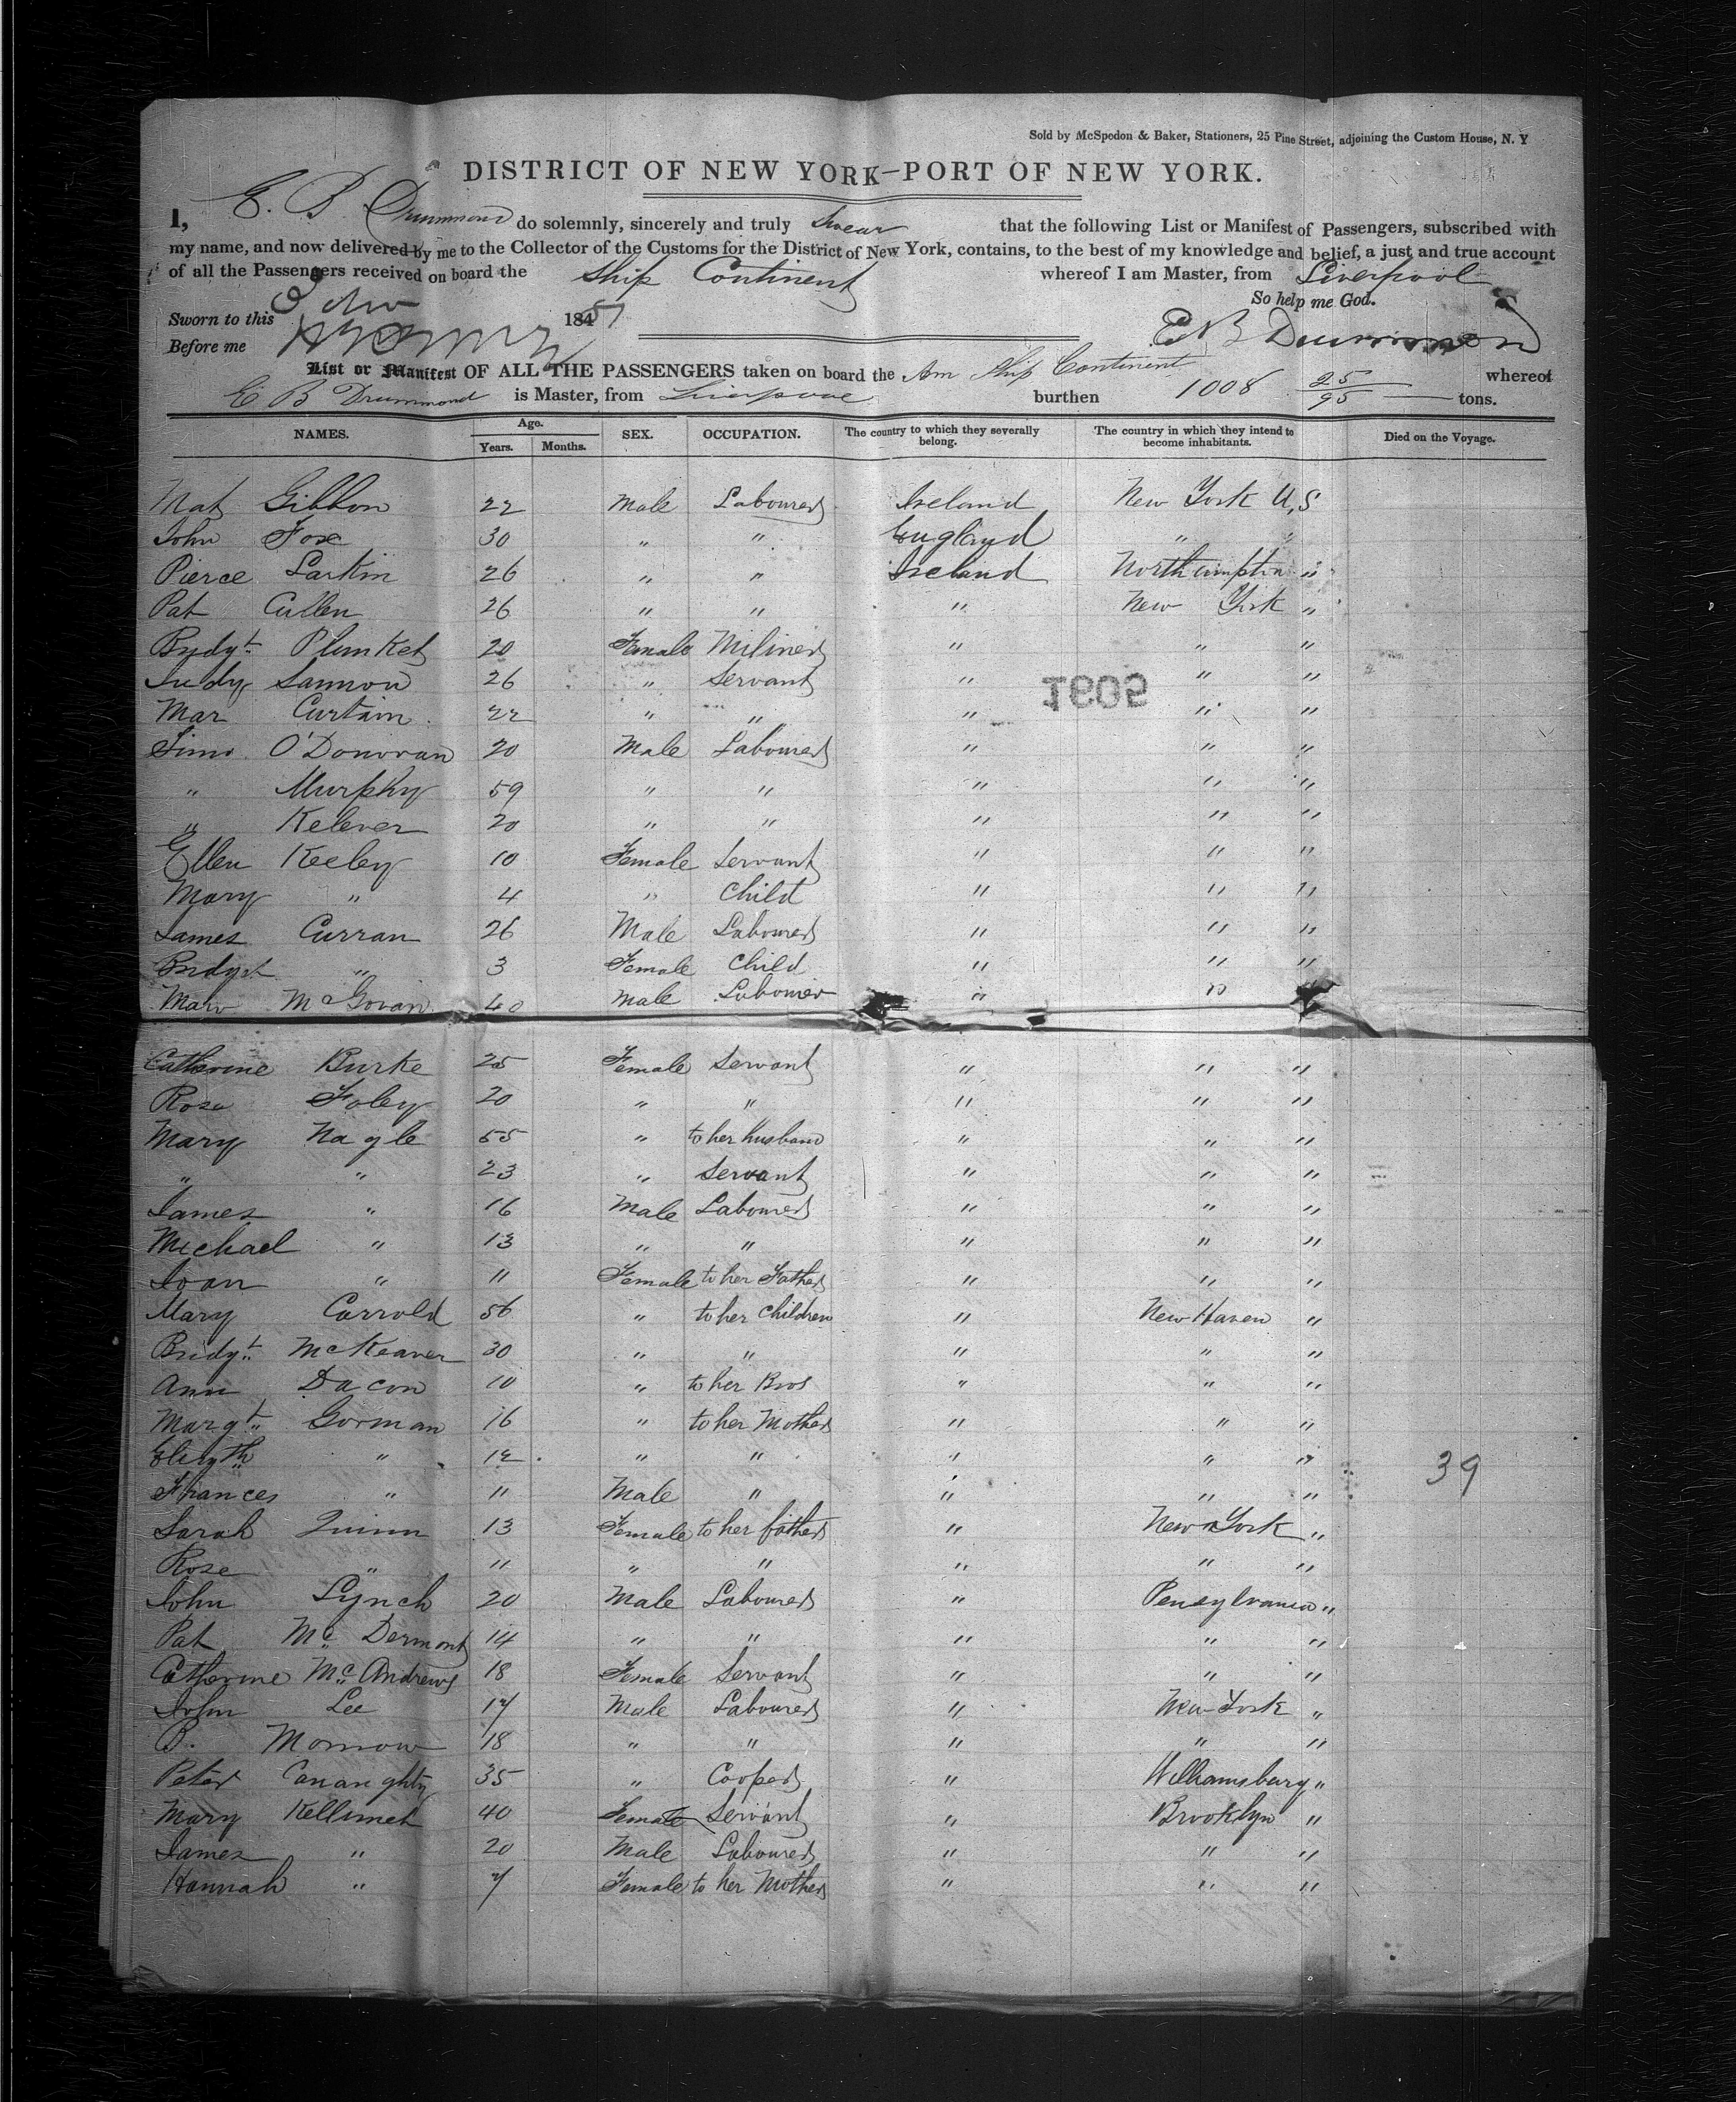 Sold by McSpedon & Baker, Stationers, 25 Pine Street, adjoining the Custom House, N. Y
DISTRICT OF NEW YORK—PORT OF NEW YORK.
I, E. B. Drummond do solemnly, sincerely and truly Swear that the following List or Manifest of Passengers, subscribed with
my name, and now delivered by me to the Collector of the Customs for the District of New York, contains, to the best of my knowledge and belief, a just and true account
of all the Passengers received on board the Ship Continent whereof I am Master, from Liverpool
So help me God.
Sworn to this 184
Before me E B Drummond
List or Manifest OF ALL THE PASSENGERS taken on board the Am Ship Continent whereof
E B Drummond is Master, from Liverpool burthen 1008 25/95 tons.
NAMES. Age. Years. Months. SEX. OCCUPATION. The country to which they severally belong. The country in which they intend to become inhabitants. Died on the Voyage.
Mat Gibbon 22 Male Labourer Ireland New York U,S
John Fox 30 " " England " "
Pierce Larkin 26 " " Ireland Northampton "
Pat Cullen 26 " " " New York "
Brydyt Plunket 20 Female Miliner " " "
Judy Lannon 26 " Servant " " "
1605
Mar Curtain 22 " " " " "
Timo O'Donovan 20 Male Labourer " " "
" Murphy 59 " " " " "
" Kelever 20 " " " " "
Ellen Keeley 10 Female Servant " " "
Mary " 4 " Child " " "
James Curran 26 Male Labourer " " "
Bridyt " 3 Female Child " " "
McGovan 40 Male Labourer " " "
Catherine Burke 25 Female Servant " " "
Rose Foley 20 " " " " "
Mary Nagle 55 " to her husband " " "
" " 23 " Servant " " "
James " 16 Male Labourer " " "
Michael " 13 " " " " "
Joan " 11 Female to her Father " " "
Mary Carrold 56 " to her Children " New Haven "
Bridyt McKeaver 30 " " " " "
Ann Dacon 10 " to her Bros " " "
Margt Gorman 16 " to her Mother " " "
Elizth " 12 " " " " "
39
Frances " 11 Male " " " "
Sarah Quinn 13 Female to her father " New York "
Rose " 11 " " " " "
John Lynch 20 Male Labourer " Pensylvania "
Pat Mc Dermont 14 " " " " "
Catherine McAndrews 18 Female Servant " " "
John Lee 17 Male Labourer " New York "
B. Morrow 18 " " " " "
Peter Cananghty 35 " Cooper " Williamsburg "
Mary Kellimet 40 Female Servant " Brooklyn "
James " 20 Male Labourer " " "
Hannah " 7 Female to her Mother " " "